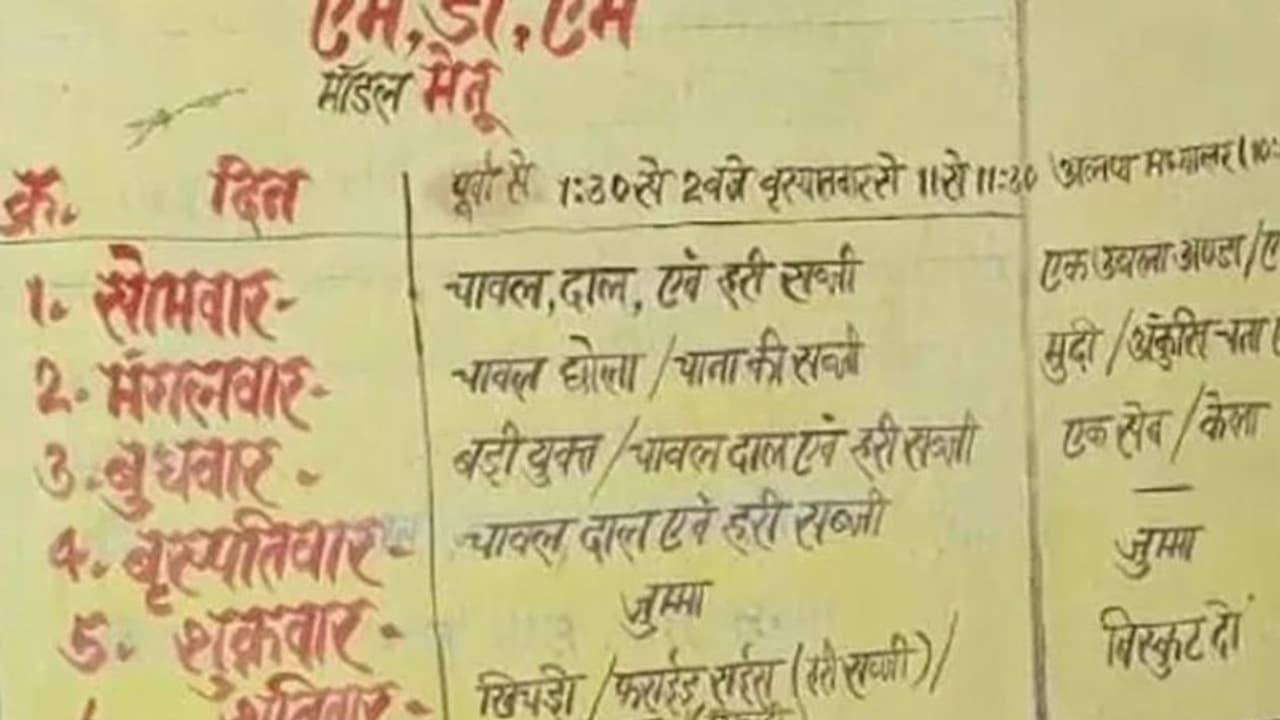 एम.डी.एम
मॉडल मेनू
क्रं. दिन पूर्वा से 1:30 से 2 बजे वृस्पतिवार से 11 से 11:30 अल्पा मध्यान्तर (10:
1. सोमवार- चावल, दाल, एवं हरी सब्जी एक उबला अण्डा/ए
2. मंगलवार- चावल छोला/चाना की सब्जी मुढ़ी/अंकुरित चना
3. बुधवार - बड़ी युक्त/चावल दाल एवं हरी सब्जी एक सेब/केला
4. बृस्पतिवार- चावल दाल एवं हरी सब्जी —
5. शुक्रवार- जुम्मा जुम्मा
शनिवार- खिचड़ी/फराईड राईस (हरी सब्जी)/ बिस्कुट दो